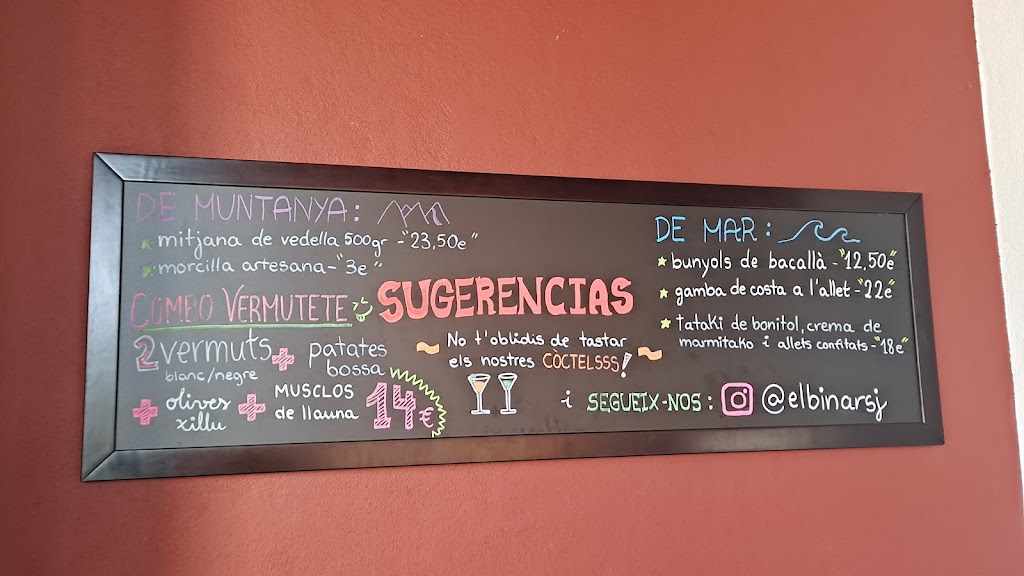 DE MUNTANYA:
mitjana de vedella 500gr -"23,50e"
morcilla artesana-"3e"
COMBO VERMUTETE
2 vermuts
blanc/negre
+ patates
bossa
+ olives
xillu
+ MUSCLOS
de llauna
14€
SUGERENCIAS
No t'oblidis de tastar
els nostres CÒCTELSSS!
DE MAR:
bunyols de bacallà -"12,50e"
gamba de costa a l'allet -"22e"
tataki de bonitol, crema de
marmitako i allets confitats-"18e"
i SEGUEIX-NOS: @elbinarsj